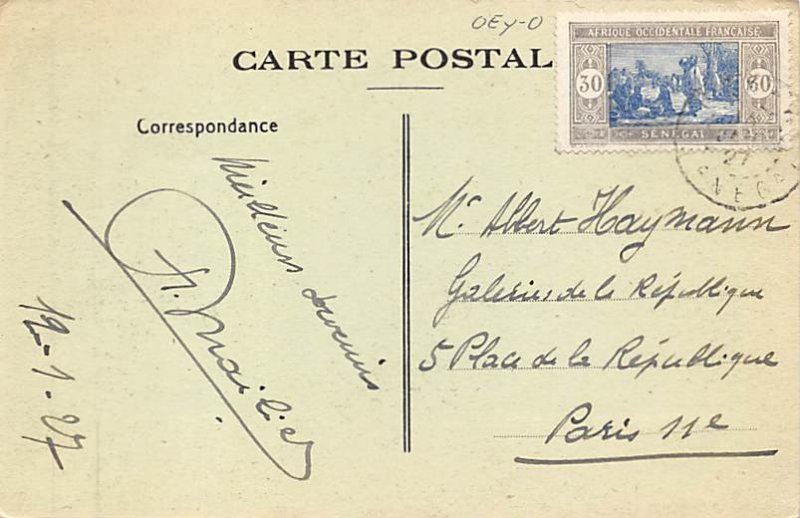 OEY-0
AFRIQUE OCCIDENTALE FRANÇAISE
30 30
SÉNÉGAL
27
CARTE POSTAL
Correspondance
Meilleurs souvenirs
12-1-27
Mr Albert Haymann
Galeries de la République
5 Place de la République
Paris 11e